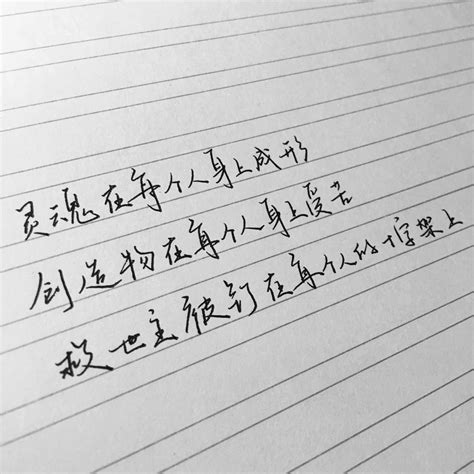 灵魂在每个人身上成形
创造物在每个人身上受苦
救世主被钉在每个人的十字架上